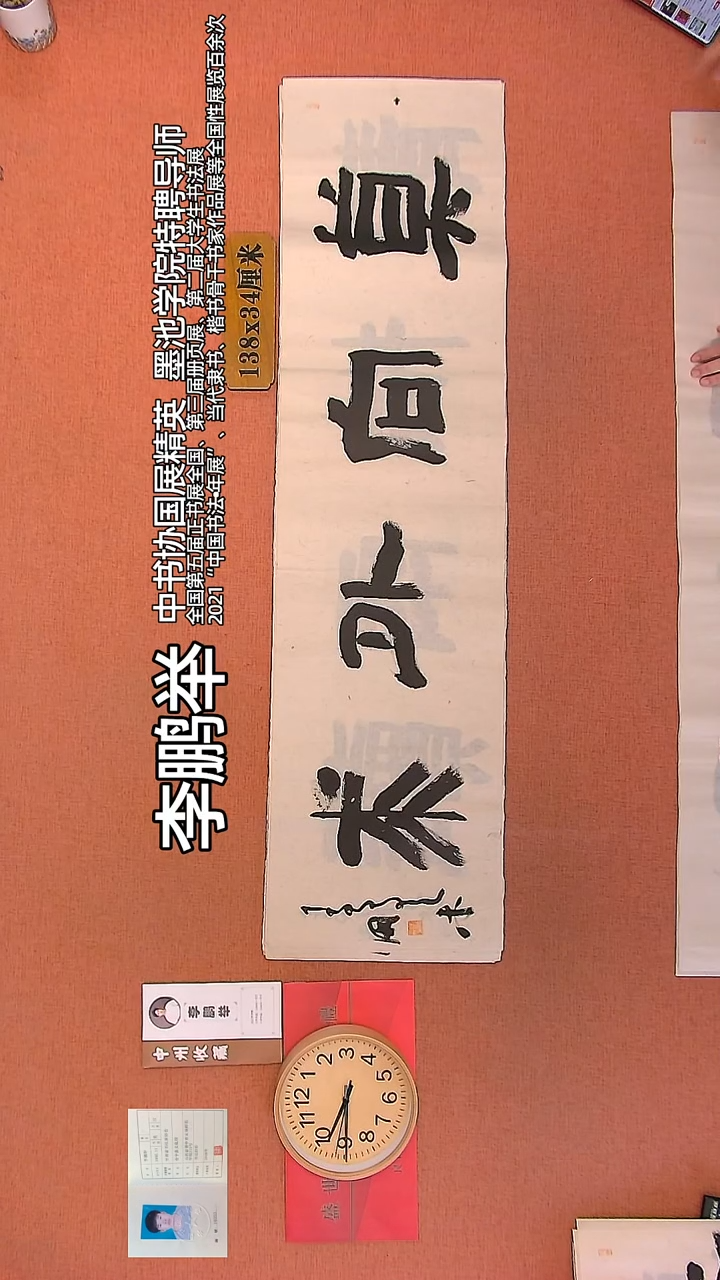 李鹏举
中书协国展精英 墨池学院特聘导师
全国第五届正书展全国、第三届册页展、第二届大学生书法展
2021“中国书法·年展”、当代隶书、楷书骨干书家作品展等全国性展览百余次
138x34厘米
莫向外求
李鹏举
中州收藏
盛世
12
1
2
3
4
5
6
7
8
9
10
11